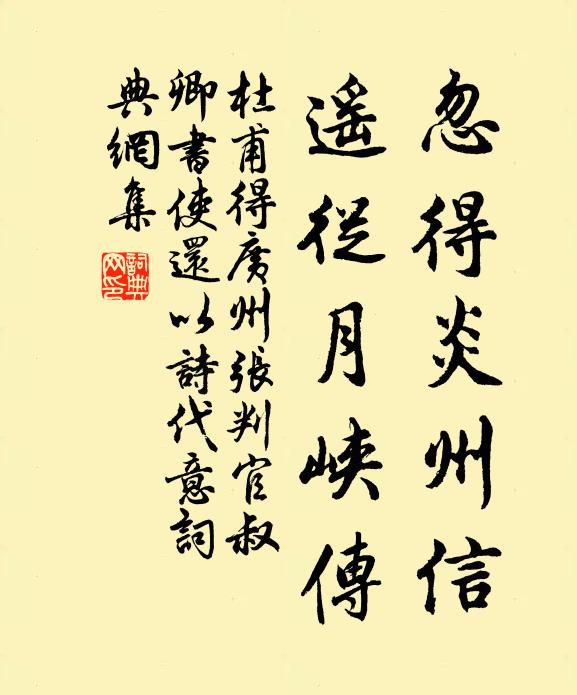 忽得炎州信
遥從月峽傳
杜甫得廣州張判官叔
卿書使還以詩代意詞
典網集
詞典網印